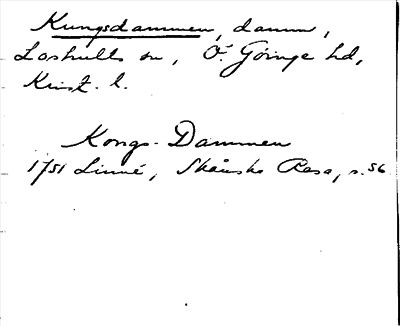 Kungsdammen, damm,
Loshults sn, Ö. Göinge hd,
Krist. l.
Kongs-Dammen
1751 Linné, Skånska Resa, s. 56